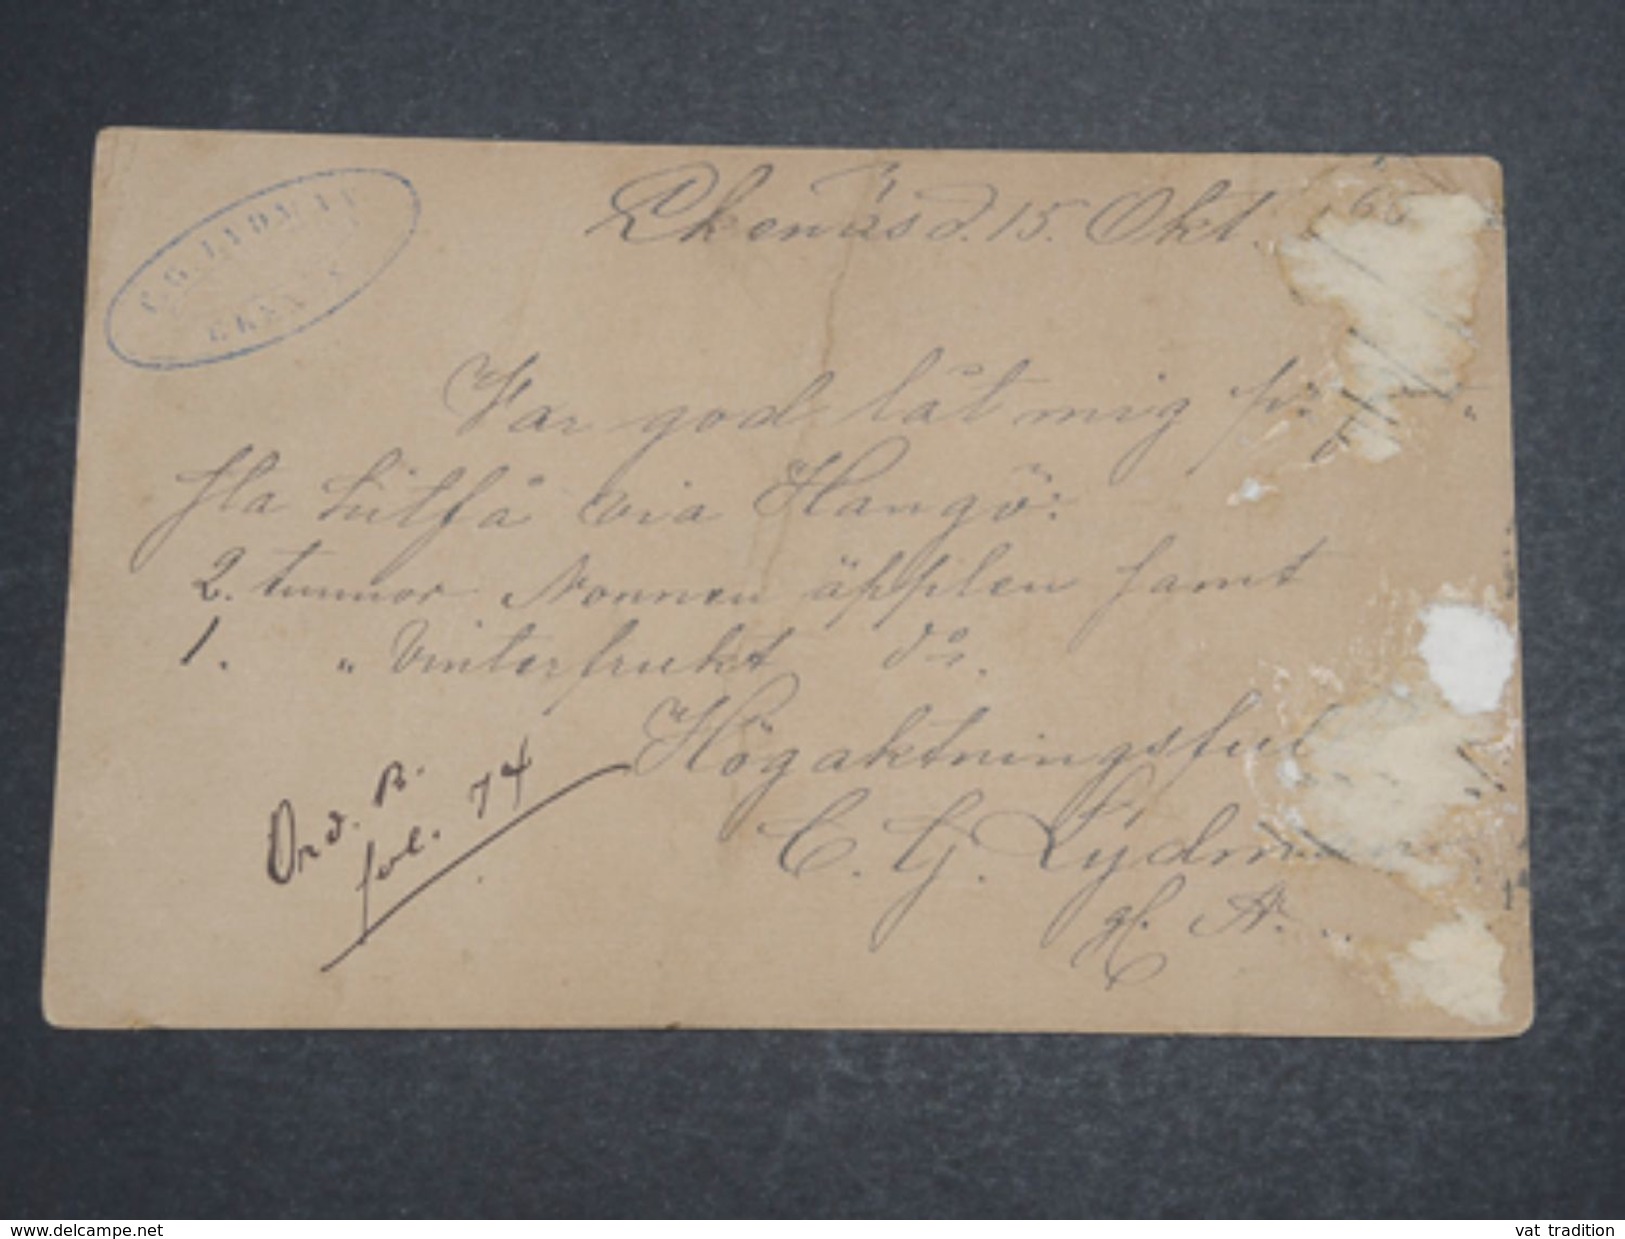 C. G. LYDMAN
EKENÄS
Ekenäs d. 15. Okt.
Var god låt mig
sta bilfå via Hangö:
2. tunnor Nonnen äpplen samt
1. " Vinterfrukt do.
Högaktningsful
C. G. Lydm
Ord. B.
fol. 74
www.delcampe.net
vat tradition